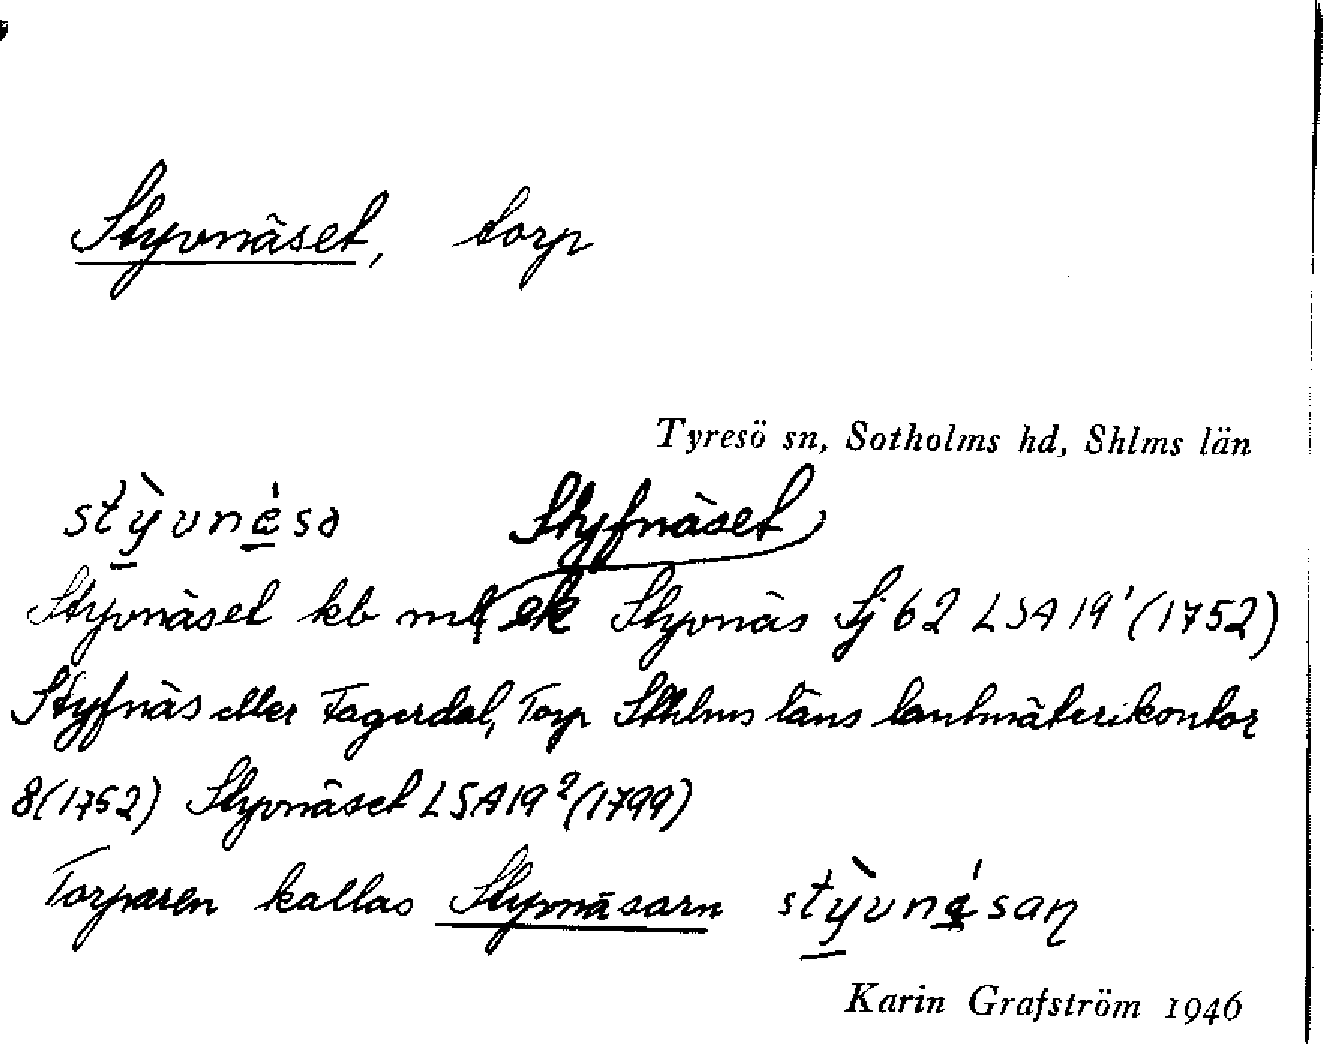 Styvnäset, torp
Tyresö sn, Sotholms hd, Shlms län
stỳvnésə Styfnäset
Styvnäset kb mtl ek Styvnäs Sj 62 LSA 19¹ (1752)
Styfnäs eller Fagerdal, Torp Sthlms läns lantmäterikontor
8 (1752) Styvnäset LSA 19² (1799)
Torparen kallas Styvnäsarn stỳvnésaɳ
Karin Grafström 1946